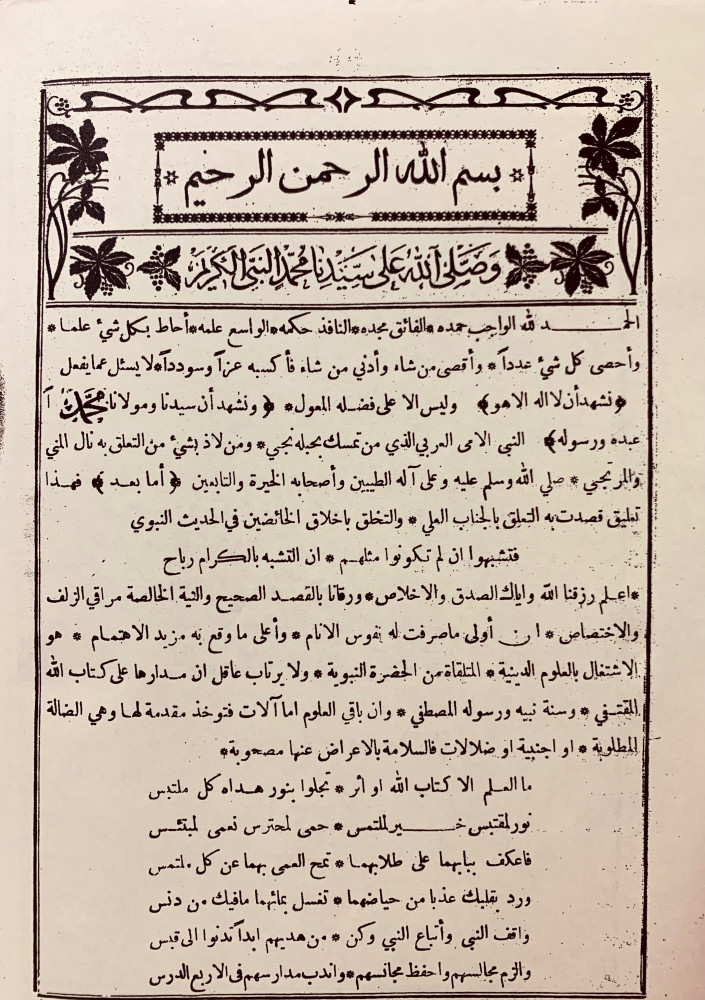 بسم الله الرحمن الرحيم
وَصَلَّى اللهُ عَلَى سَيِّدِنَا مُحَمَّدٍ النَّبِيِّ الْكَرِيمِ
الحمد لله الواجب حمده * الفائق مجده * النافذ حكمه * الواسع علمه * أحاط بكل شيء علما *
وأحصى كل شيء عدداً * وأقصى من شاء وأدني من شاء فأكسبه عزاً وسودداً * لا يسئل عما يفعل
﴿ونشهد أن لا اله الا هو﴾ وليس الا على فضله المعول * ﴿ونشهد أن سيدنا ومولانا محمد اً
عبده ورسوله﴾ النبي الامى العربي الذي من تمسك بحبله نجي * ومن لاذ بشيء من التعلق به نال المني
والمرتجي * صلي الله وسلم عليه وعلى آله الطيبين وأصحابه الخيرة والتابعين ﴿أما بعد﴾ فهذا
تعليق قصدت به التعلق بالجناب العلي * والتخلق باخلاق الخائضين في الحديث النبوي
فتشبهوا ان لم تكونوا مثلهم * ان التشبه بالكرام رباح
* اعلم رزقنا الله واياك الصدق والاخلاص * ورقانا بالقصد الصحيح والنية الخالصة مراقي الزلف
والاختصاص * ان أولى ما صرفت له نفوس الانام * وأعلى ما وقع به مزيد الاهتمام * هو
الاشتغال بالعلوم الدينية * المتلقاة من الحضرة النبوية * ولا يرتاب عاقل ان مدارها على كتاب الله
المقتفي * وسنة نبيه ورسوله المصطفي * وان باقي العلوم اما آلات فتوخذ مقدمة لها وهي الضالة
المطلوبة * او اجنبية او ضلالات فالسلامة بالاعراض عنها مصحوبة *
ما العلم الا كتاب الله او أثر * تجلوا بنور هداه كل ملتبس
نور لمقتبس خير لملتمس * حمى لمحترس نعمى لمبتئس
فاعكف ببابهما على طلابهما * تمح العمى بهما عن كل ملتمس
ورد بقلبك عذبا من حياضهما * تغسل بمائهما مافيك من دنس
واقف النبي وأتباع النبي وكن * من هديهم ابداً تدنوا الى قبس
والزم مجالسهم واحفظ مجانسهم * واندب مدارسهم فى الاربع الدرس